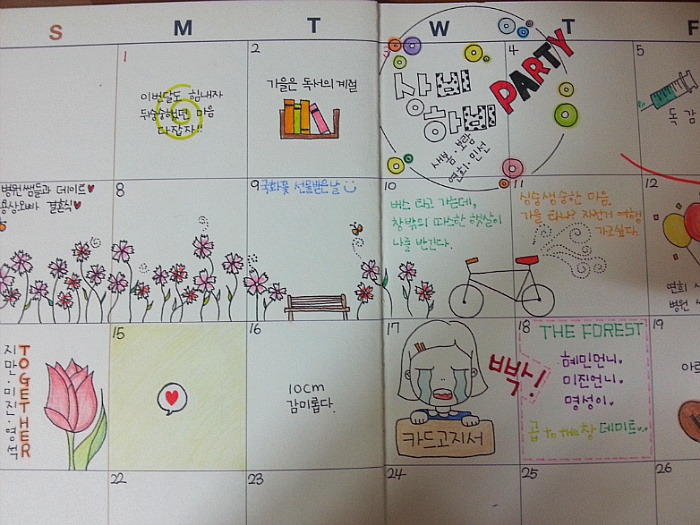 S M T W T F
1
이번달도 힘내자
뒤숭숭했던 마음
다잡자!!
2
가을은 독서의 계절
3
상빈
하빈
새별·보람
연희·민선
4
PARTY
5
독감
병원쌤들과 데이트♥
용상오빠 결혼식♥
8
9
국화꽃 선물받은날
10
버스 타고 가는데,
창밖의 따스한 햇살이
나를 반긴다.
11
싱숭생숭한 마음.
가을 타나? 자전거 여행
가고싶다.
12
연희
병원
TOGETHER
지만·미진·영석
15
16
10cm
감미롭다.
17
카드고지서
빠박!
18
THE FOREST
혜민언니.
미진언니.
명성이.
데이트
19
22
23
24
25
26